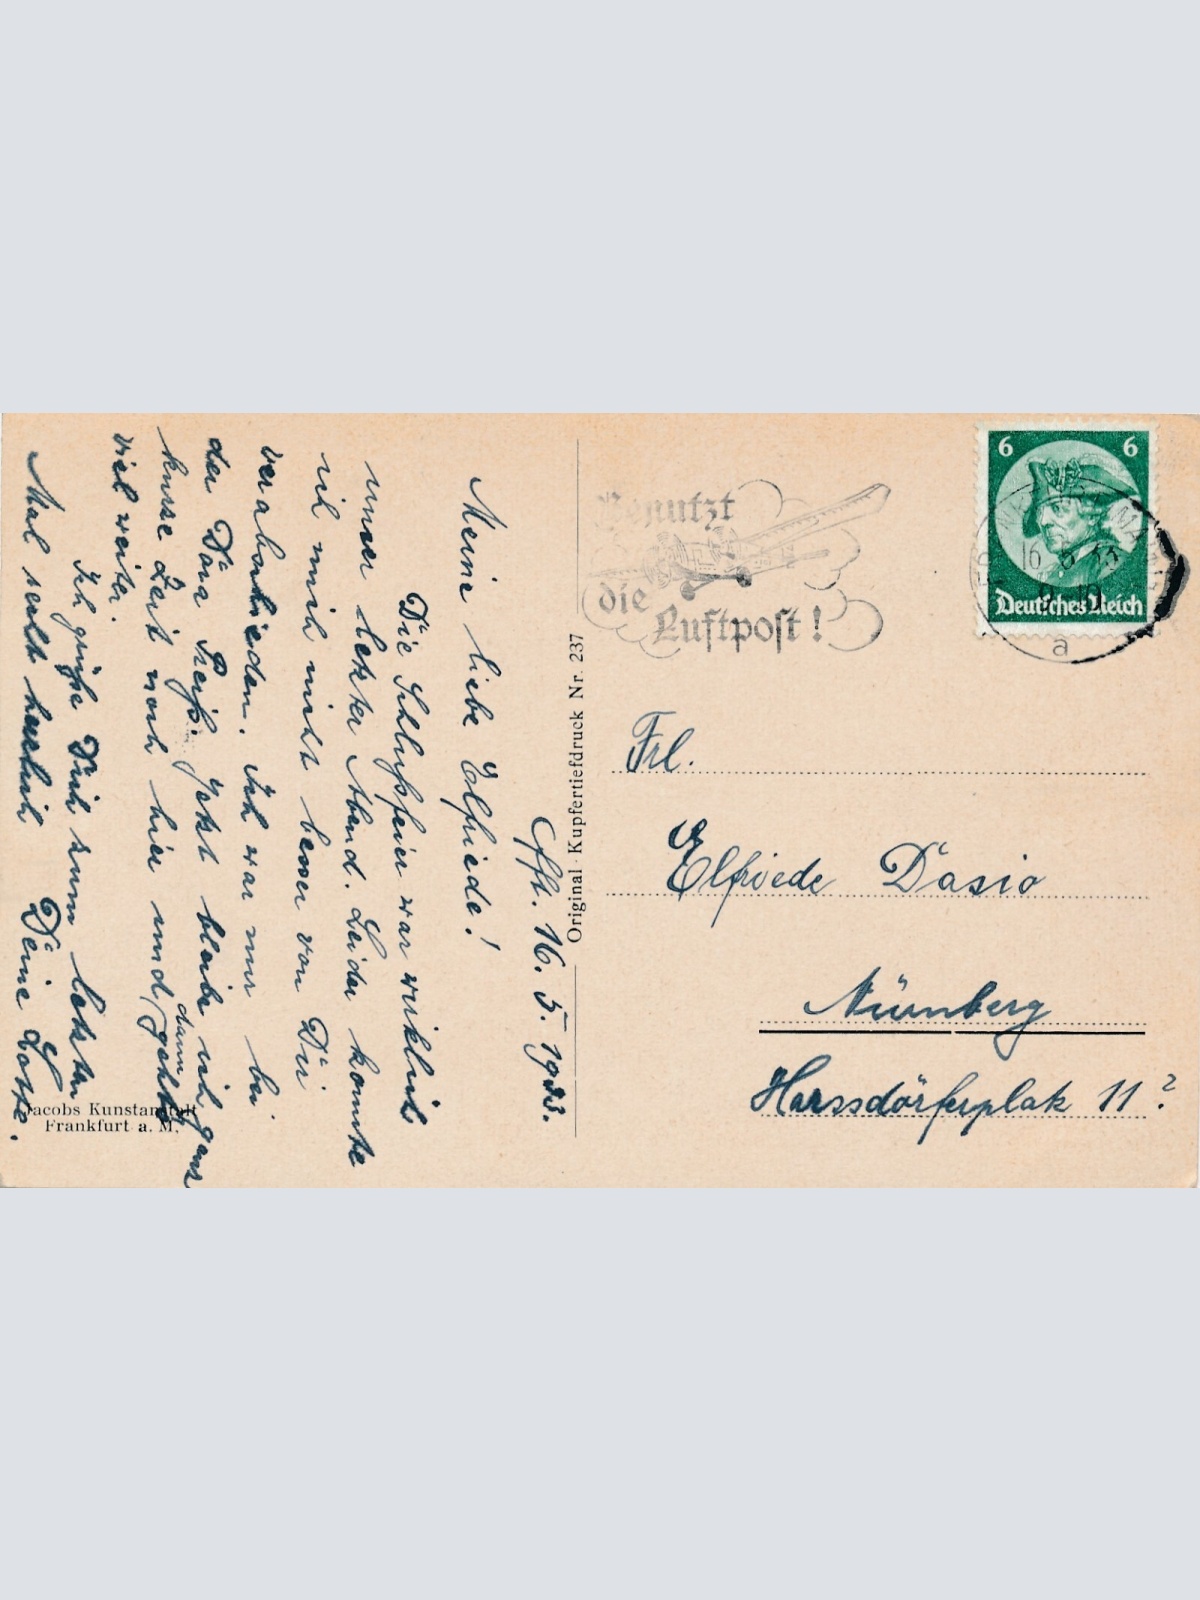 Fft. 16. 5. 1933.
Meine liebe Elfriede!
Die Schlußfeier war wirklich
unser letzter Abend. Leider konnte
ich mich nicht besser von Dir
verabschieden. Ich war nur bei
der Dora Preiß. Jetzt bleibe ich ganz
kurze Zeit noch hier und dann geht's
viel weiter.
Ich grüße Dich zum letzten
Mal recht herzlich Deine Lotte.
Jacobs Kunstanstalt
Frankfurt a. M.
Original-Kupfertiefdruck Nr. 237
Benutzt
die
Luftpost!
6 6
Deutsches Reich
16. 5. 33
a
Frl.
Elfriede Dasio
Nürnberg
Harssdörferplatz 11?